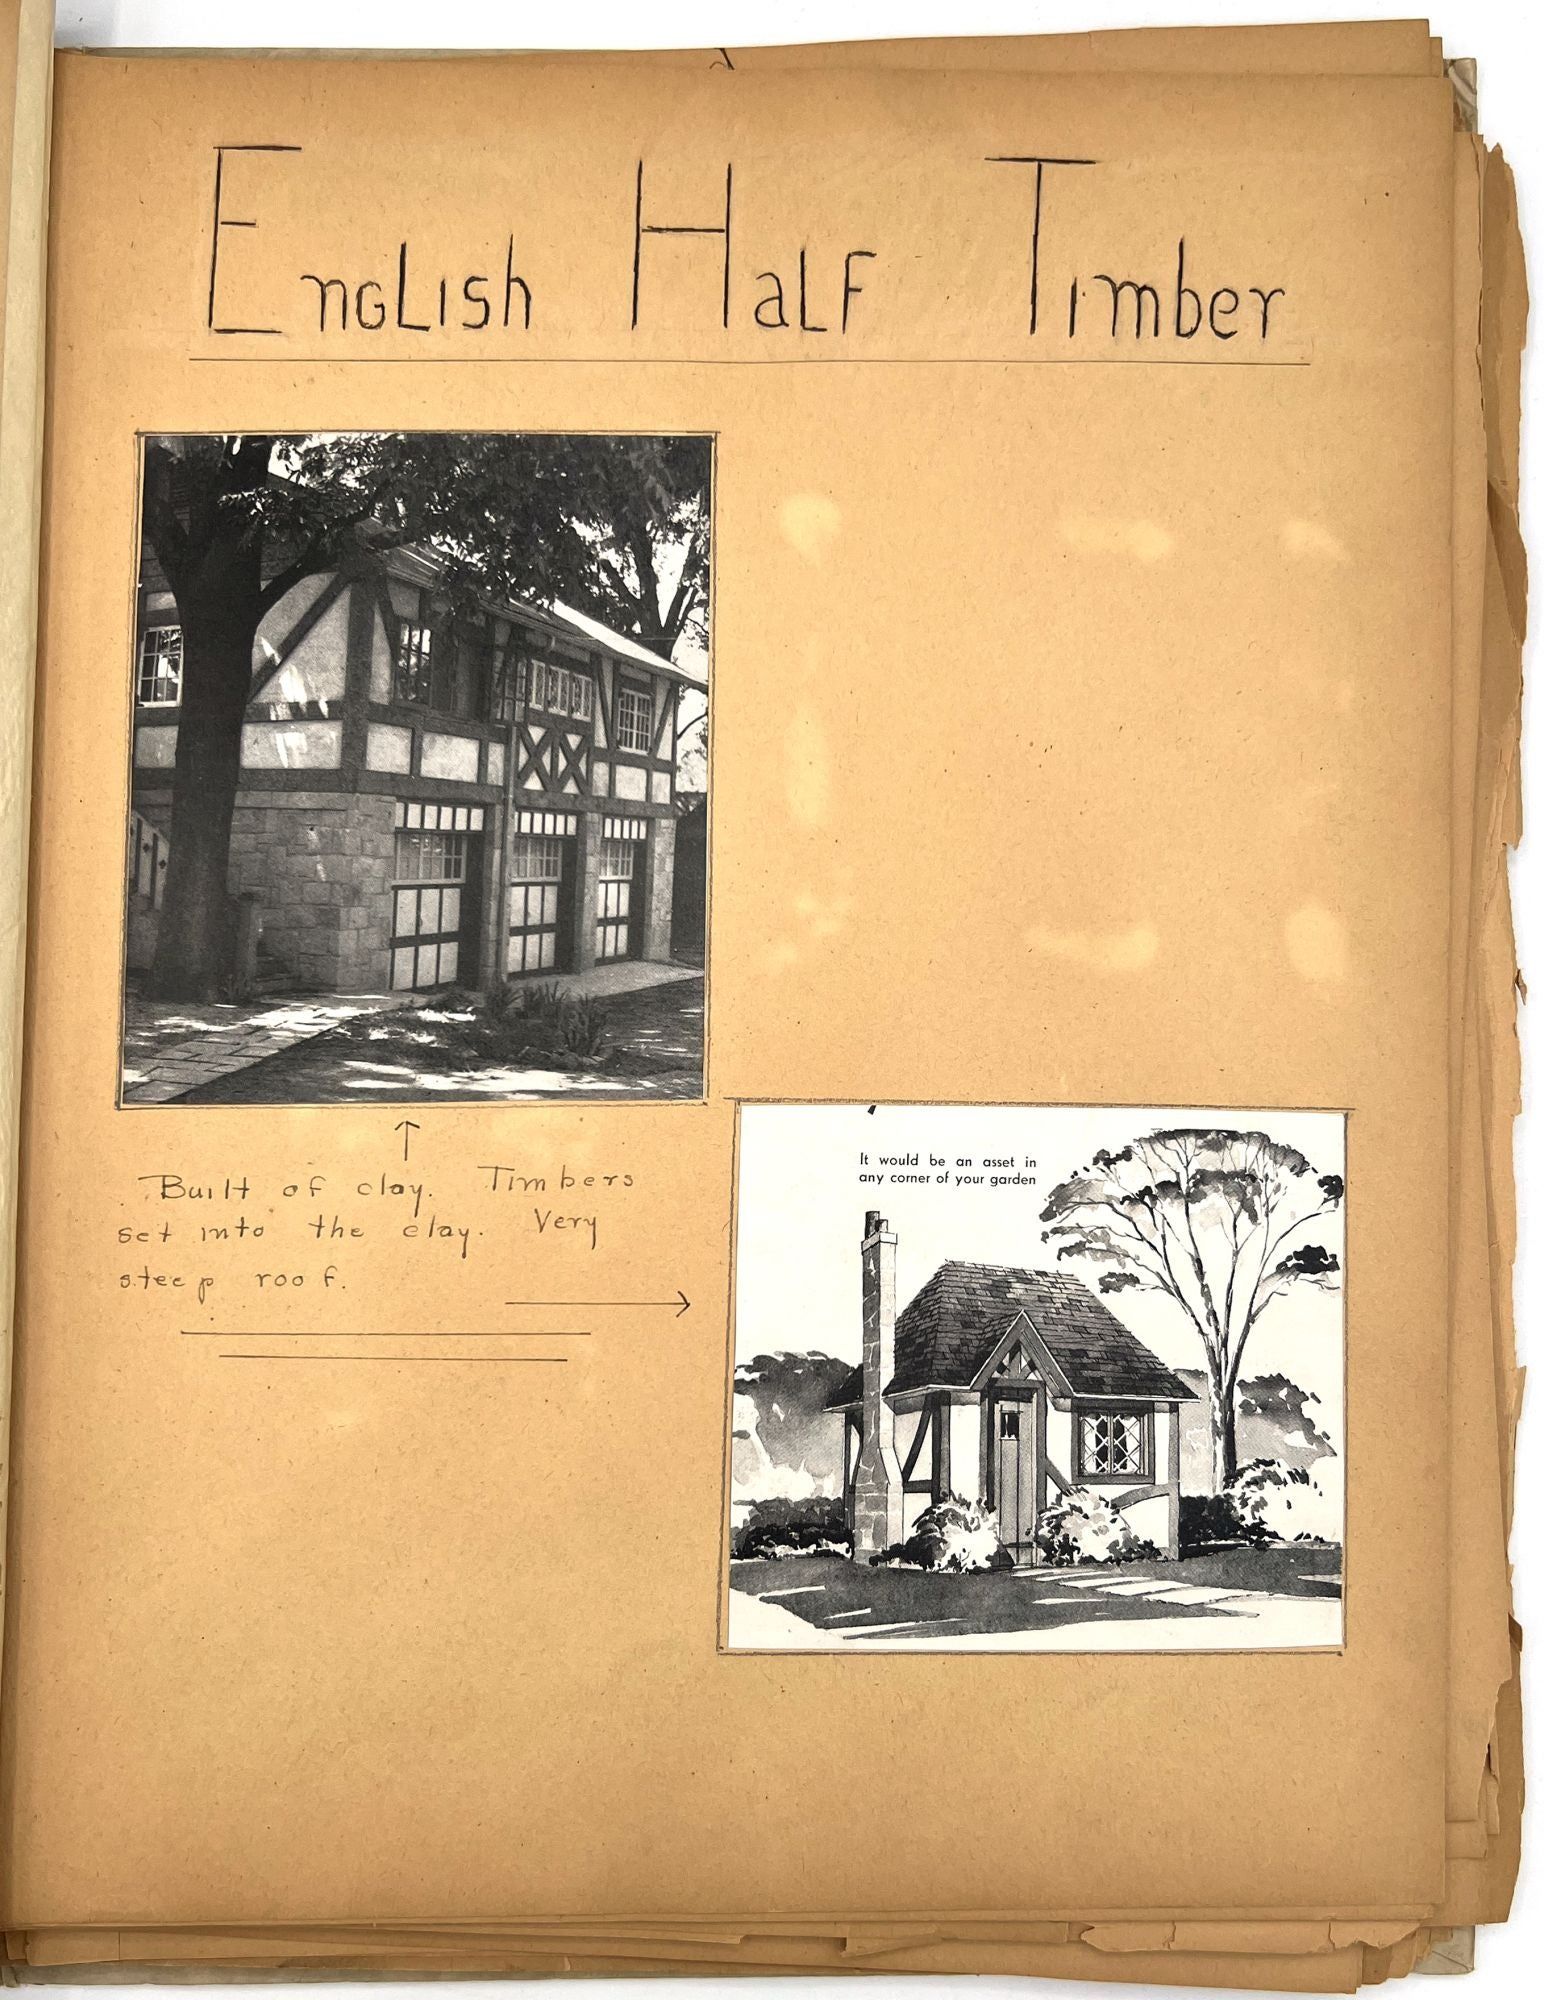 English Half Timber
Built of clay. Timbers
set into the clay. Very
steep roof.
It would be an asset in
any corner of your garden